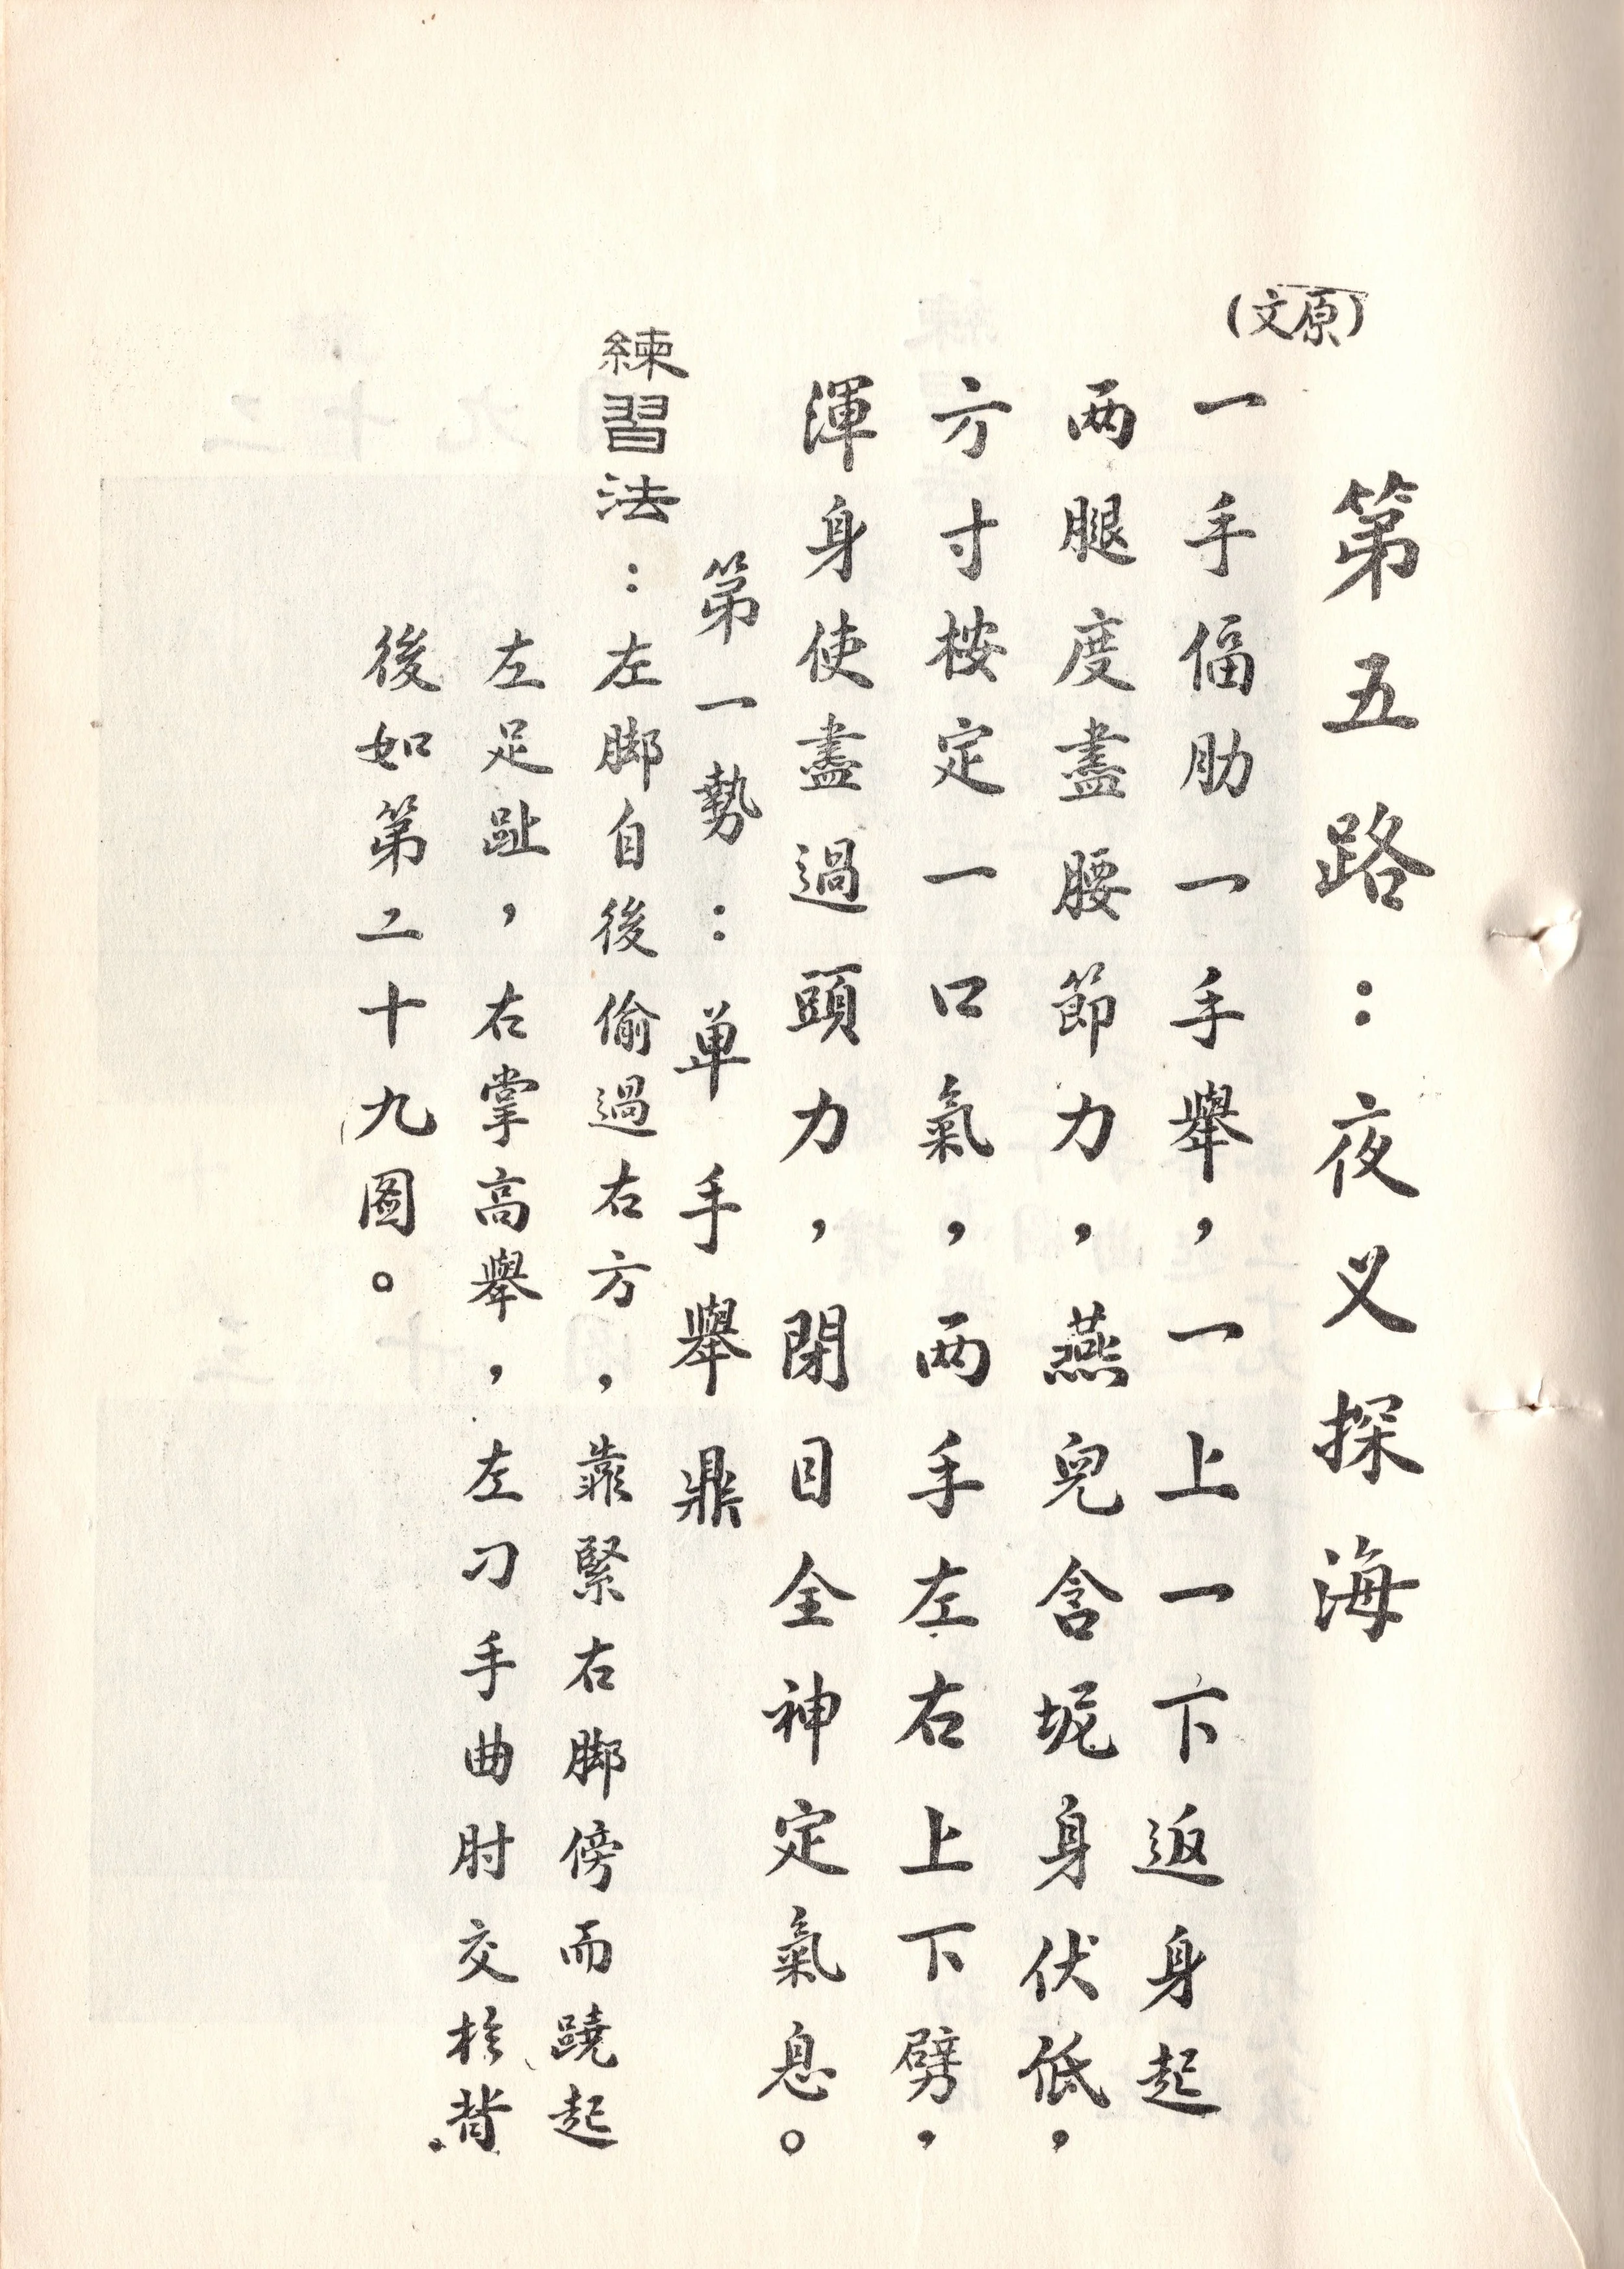 第五路：夜叉探海
(原文)
一手偪肋一手舉，一上一下返身起
两腿度盡腰節力，燕兒含坭身伏低，
方寸桉定一口氣，两手左右上下劈，
渾身使盡過頭力，閉目全神定氣息。
第一勢：单手舉鼎
練習法：左脚自後偷過右方，靠緊右脚傍而蹺起
左足趾，右掌高舉，左刁手曲肘交扵背
後如第二十九图。